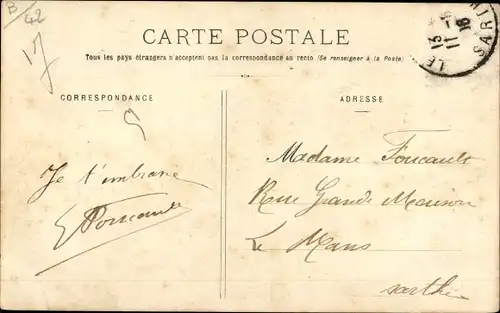 B/42
CARTE POSTALE
Tous les pays étrangers n'acceptent pas la correspondance au recto (Se renseigner à la Poste)
CORRESPONDANCE
ADRESSE
Je t'embrasse
Foucault
Madame Foucault
Rue Grande Maison
Le Mans
Sarthe
LE
15 - 5
11 16
SARTH